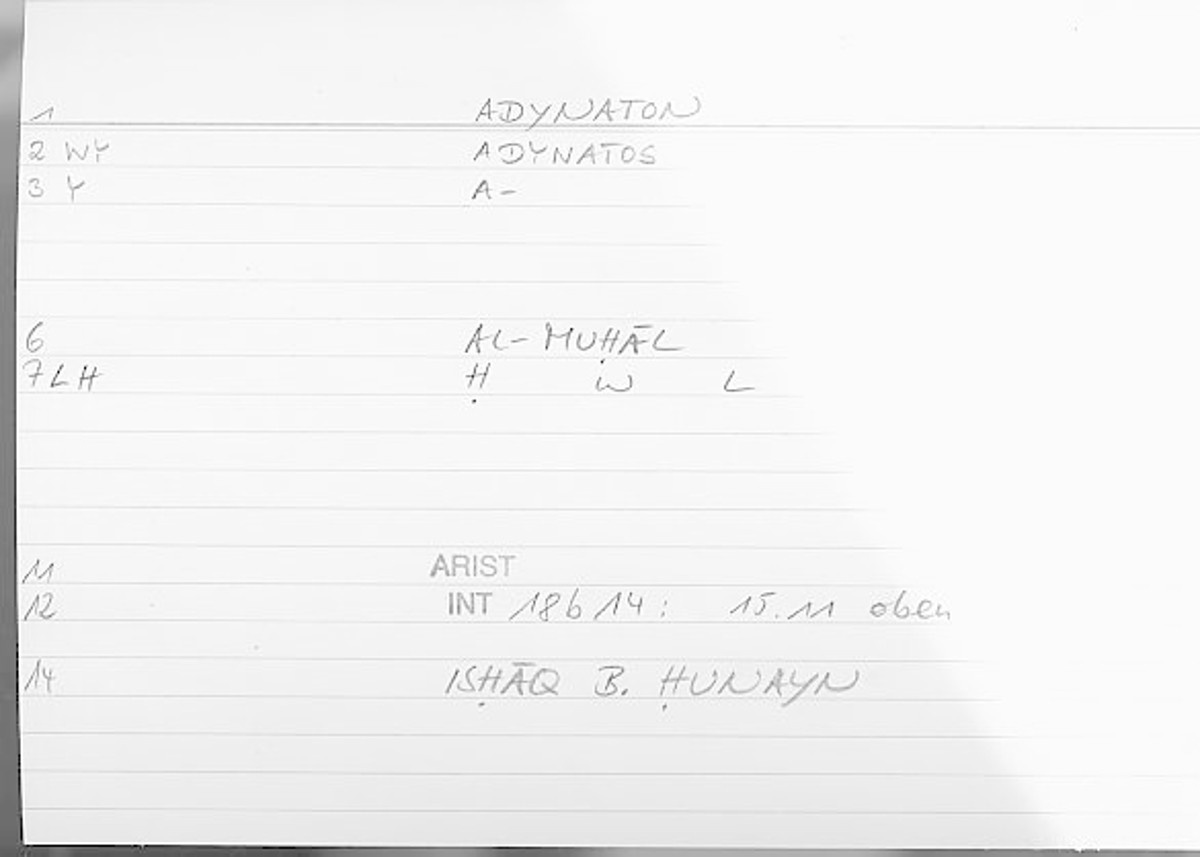 1 ADYNATON
2 WY ADYNATOS
3 Y A-
6 AL-MUḤĀL
7 LH Ḥ W L
11 ARIST
12 INT 18b14: 15.11 oben
14 ISḤĀQ B. ḤUNAYN